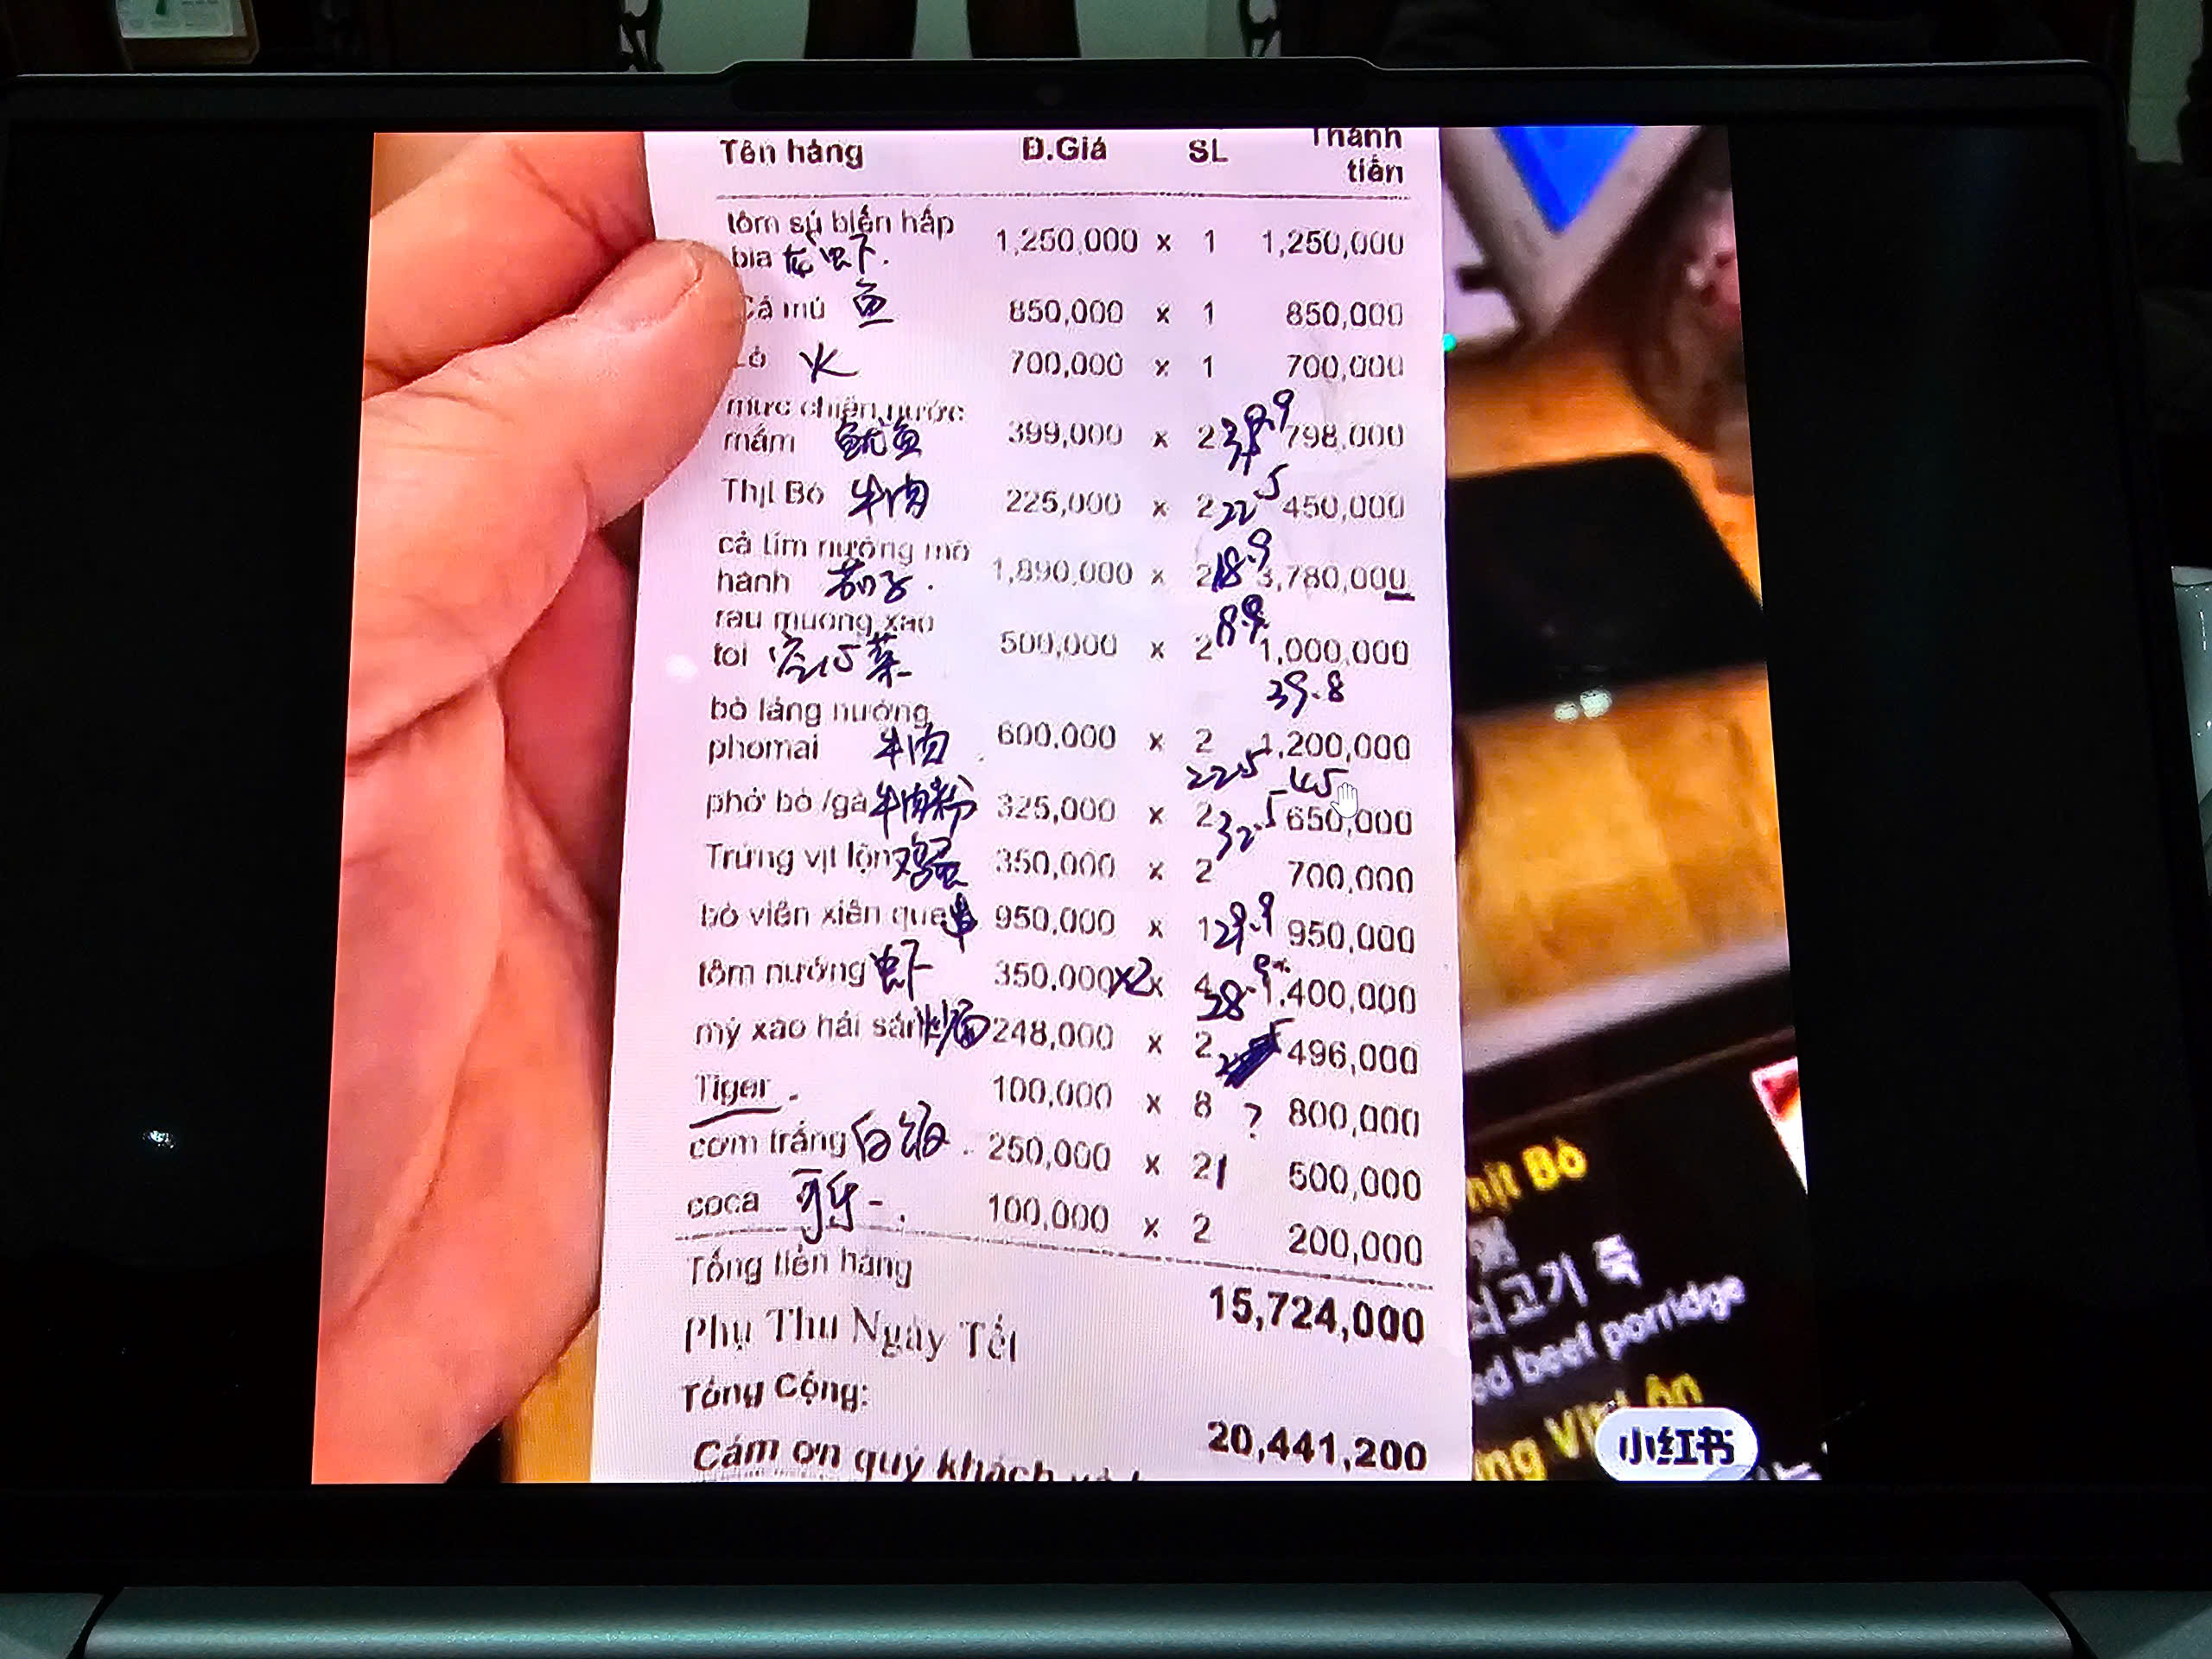 Tên hàng Đ.Giá SL Thành
tiền
tôm sú biển hấp
bia 龙虾. 1,250,000 x 1 1,250,000
Cá mú 鱼 850,000 x 1 850,000
火 700,000 x 1 700,000
mực chiên nước
mắm 鱿鱼 399,000 x 2 798,000
Thịt Bò 牛肉 225,000 x 2 22.5 450,000
cà tím nướng mỡ
hành 茄子. 1,890,000 x 2 18.9 3,780,000
rau muống xào
tỏi 空心菜 500,000 x 2 1,000,000
39.8
bò lảng nướng
phomai 牛肉 600,000 x 2 1,200,000
22.5 45
phở bò /gà 牛肉粉 325,000 x 2 32.5 650,000
Trứng vịt lộn 鸡蛋 350,000 x 2 700,000
bò viên xiên que 串 950,000 x 1 29.9 950,000
tôm nướng 虾 350,000 x2 x 4 1,400,000
mỳ xào hải sản 炒面 248,000 x 2 496,000
Tiger 100,000 x 8 ? 800,000
cơm trắng 白饭. 250,000 x 2 1 500,000
coca 100,000 x 2 200,000
Tổng tiền hàng
15,724,000
Phụ Thu Ngày Tết
Tổng Cộng:
20,441,200
Cám ơn quý khách
Thịt Bò
쇠고기 죽
beef porridge
小红书